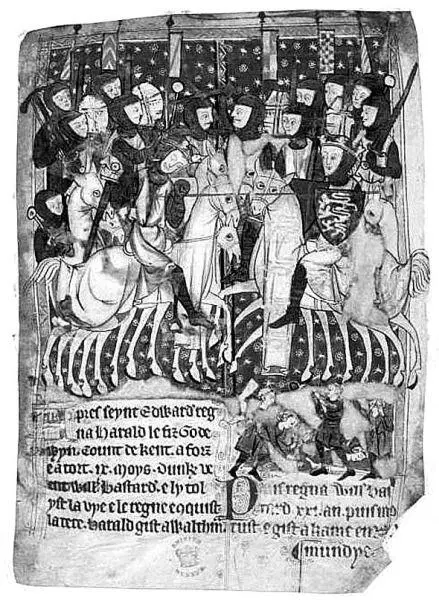 pres seynt Edward reg
na Harald le fiz Gode
wyn. Count de kent. a forz
e a tort. ix. moys. Dunke ve
ent will' Bastard. e ly tol
yst la vye e le regne e conquist
la tere. Harald gist a Waltham
Puis regna will' bas
tard. xxi. an. puis mo
rust e gist a kame en
rmundye